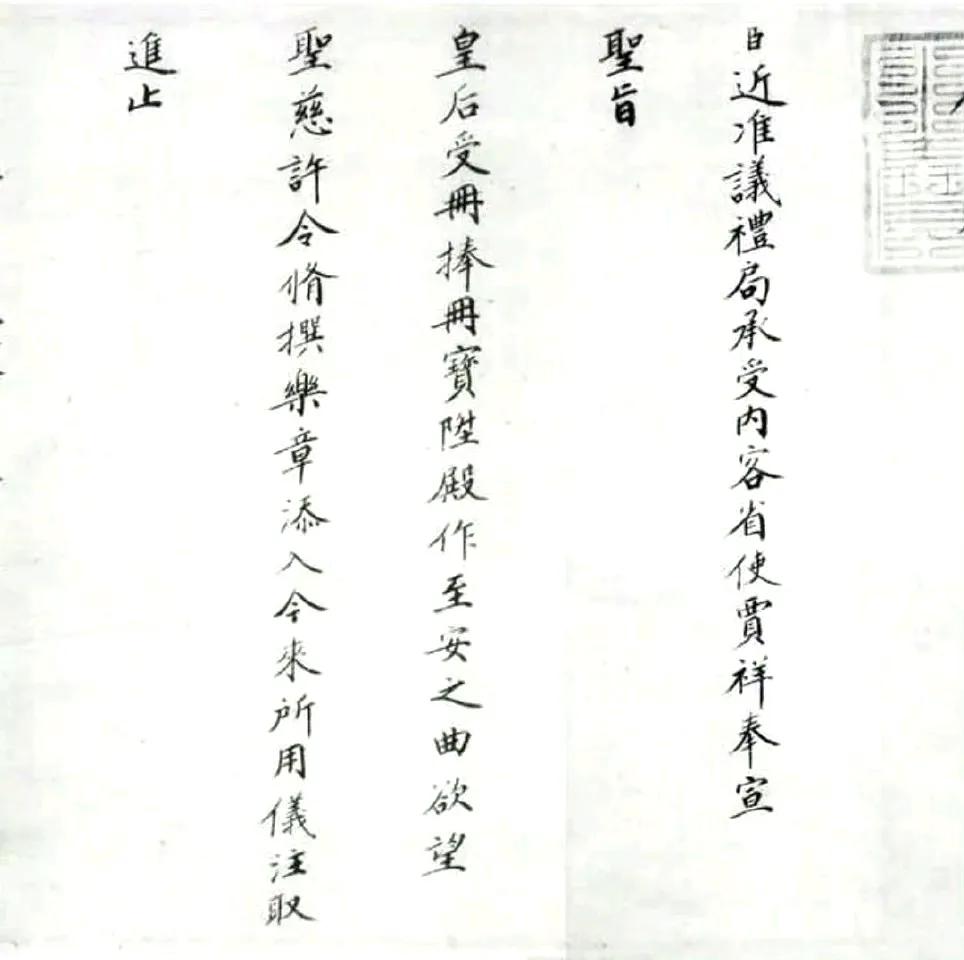 臣近准議禮局承受內客省使賈祥奉宣
聖旨
皇后受冊捧冊寶陞殿作至安之曲欲望
聖慈許令脩撰樂章添入今來所用儀注取
進止